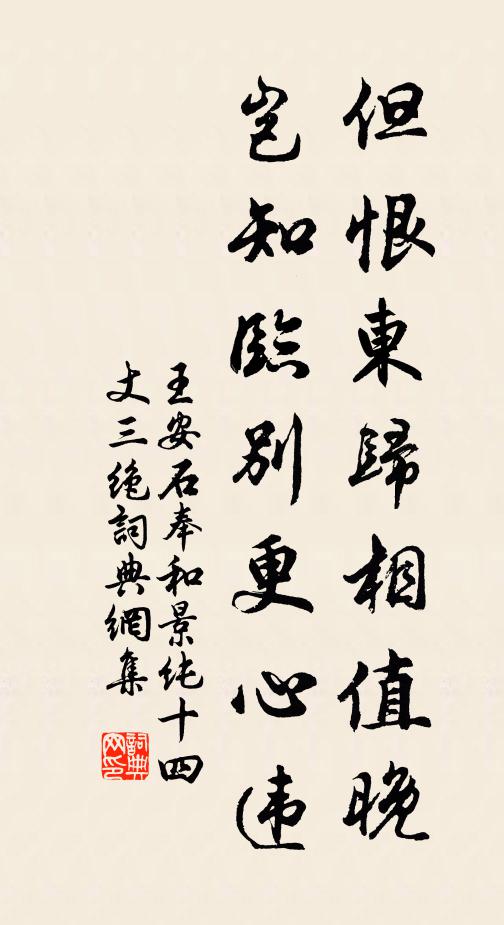 但恨東歸相值晚
豈知臨別更心违
王安石奉和景纯十四
丈三绝詞典網集
詞典网印